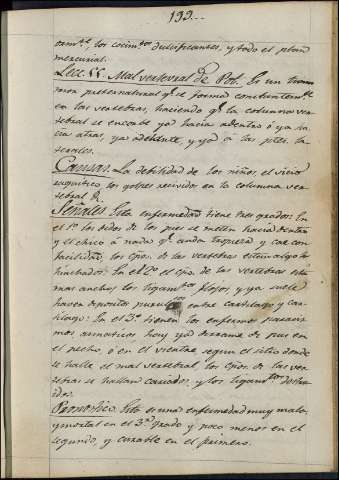 133..
los cocim.tos dulcificantes, y todo el plan
mercurial.
Lecc. 55. Mal vertevral de Pot. Es un tumor
preternatural q.e se forma constantem.te
en las vertebras, haciendo q.e la columna ver-
tebral se encorbe ya hacia adentro ô ya ha-
cia atras, ya adelante, y ya â las ptes. la-
terales.
Causas. La debilidad de los niños, el vicio
raquitico, los golpes recividos en la columna ver-
tebral &.
Señales. Esta enfermedad tiene tres grados: En
el 1.o los dedos de los pies se meten hacia dentro
y el chico â nada q.e anda tropieza y cae con
facilidad, los cpos. de las vertebras estan algo
hinchados: En el 2.o el cpo. de las vertebras está
mas ancho, los ligam.tos flojos, y ya suele
haver depositos entre cartilago y car-
tilago: En el 3.o tienen los enfermos paraxis-
mos asmaticos, hay ya derrame de pus en
el pecho, ô en el vientre, segun el sitio donde
se halle el mal vertebral, los cpos. de las ver-
tebras se hallan cariados, y los ligam.tos destrui-
dos.
Pronostico. Esta es una enfermedad muy mala,
y mortal en el 3.o grado y poco menos en el
segundo, y curable en el primero.